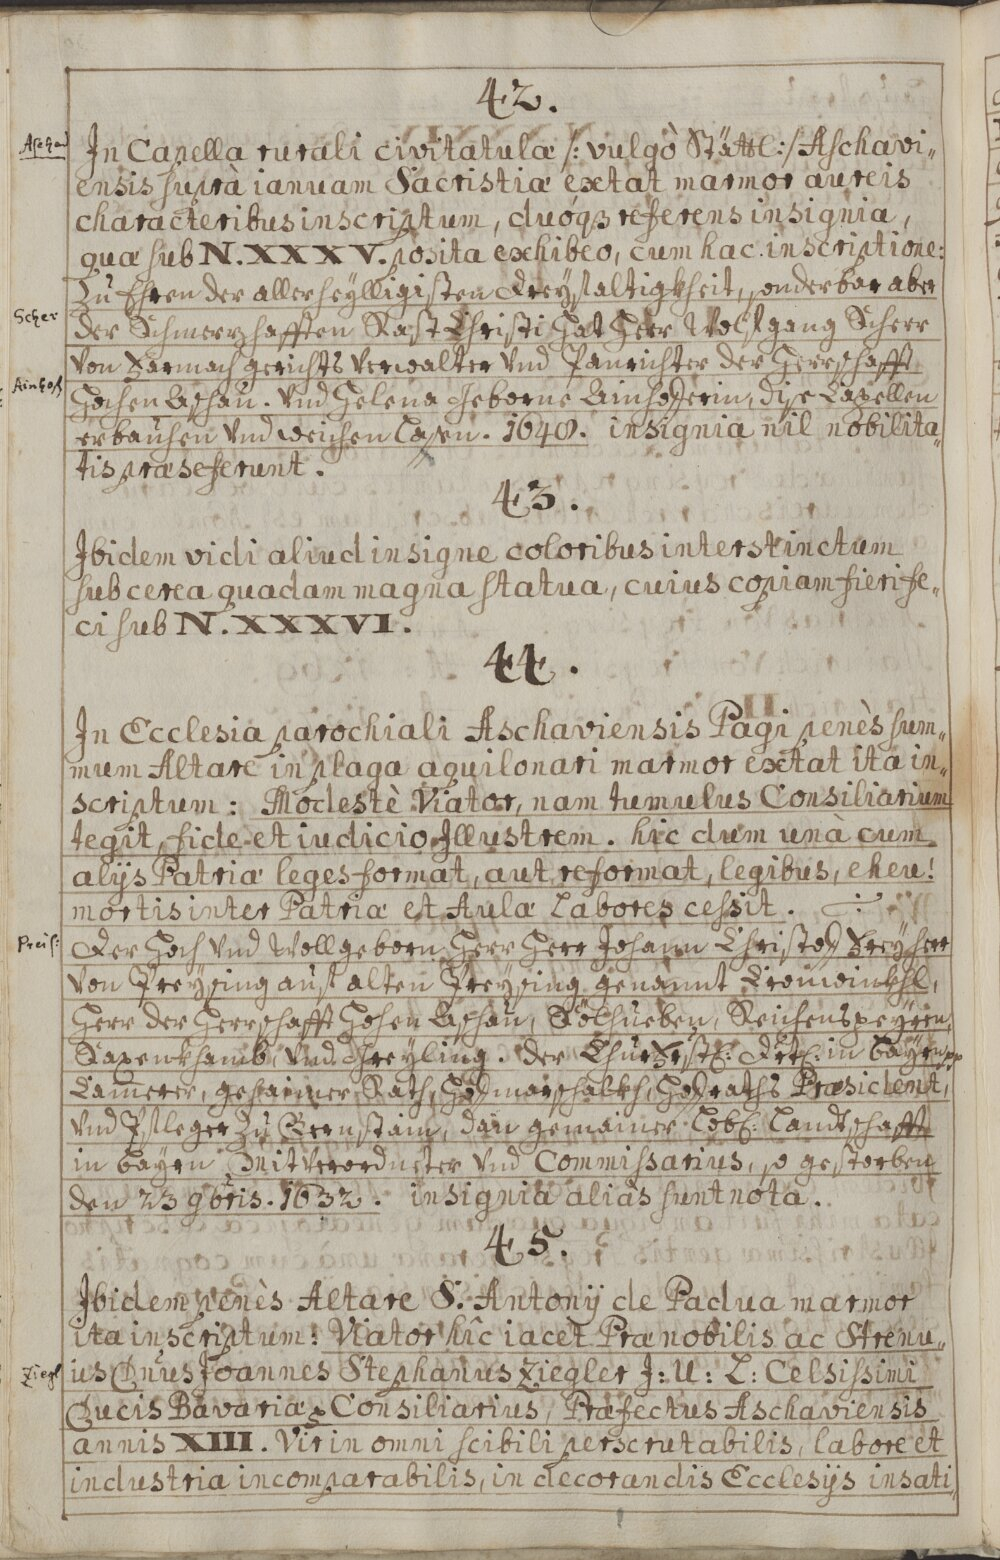 42.
Aschau
In Capella rurali civitatulæ /: vulgò Stättl:/ Aschavi„
ensis suprà ianuam Sacristiæ extat marmor aureis
characteribus inscriptum, duóqз referens insignia,
quæ sub N. XXXV. posita exhibeo, cum hac inscriptione:
Zu Ehren der allerheÿlligisten Dreÿfaltigkheit, sonderbar aber
Scher
der Schmerzhafften Rast Christi hat Herr Wolfgang Scherr
von Harmach gerichts verwalter vnd Panrichter der Herrschafft
Ainhof
Hochen Aschau. Vnd Helena geborne Ainhoferin, dise Capellen
erbauhen vnd weichen lassen. 1640. insignia nil nobilita„
tis præseferunt.
43.
Ibidem vidi aliud insigne coloribus interstinctum
sub cerea quadam magna statua, cuius copiam fieri fe„
ci sub N. XXXVI.
44.
In Ecclesia parochiali Aschaviensis Pagi penès sum„
mum Altare in plaga aquilonari marmor extat ita in„
scriptum: Modestè Viator, nam tumulus Consiliarium
tegit, fide et iudicio Illustrem. hic dum unà cum
alijs Patriæ leges format, aut reformat, legibus, eheu!
mortis inter Patriæ et Aulæ labores cessit.
Preis:
Der Hoch vnd Wollgeborn Herr Herr Johann Christof Freÿherr
von Preÿsing aus alten Preÿsing genannt Cronwinkhl,
Herr der Herrschafft Hohen Aschau, Söllhueben, Reichenspeÿrn,
Kapenkhamb, vnd Greÿling. der Churfrstl: Drtl: in baÿrn pp
Camerer, gehaimer Rath, Hofmarschalkh, Hofraths Præsident,
vnd Pfleger Zu Bernstain, dan gemainer Lobl: Landtschafft
in bayrn Mitverordneter vnd Commissarius, so gestorben
den 23 9bris. 1632. insignia aliàs sunt nota.
45.
Ibidem penès Altare S. Antonÿ de Padua marmor
ita inscriptum: Viator hîc iacet Prænobilis ac Strenu„
Ziegl
us Dn̄us Joannes Stephanus Ziegler J: U: L: Celsissimi
Ducis Bavariæ Consiliarius, Præfectus Aschaviensis
annis XIII. Vir in omni scibili perscrutabilis, labore et
industria incomparabilis, in decorandis Ecclesÿs insati„